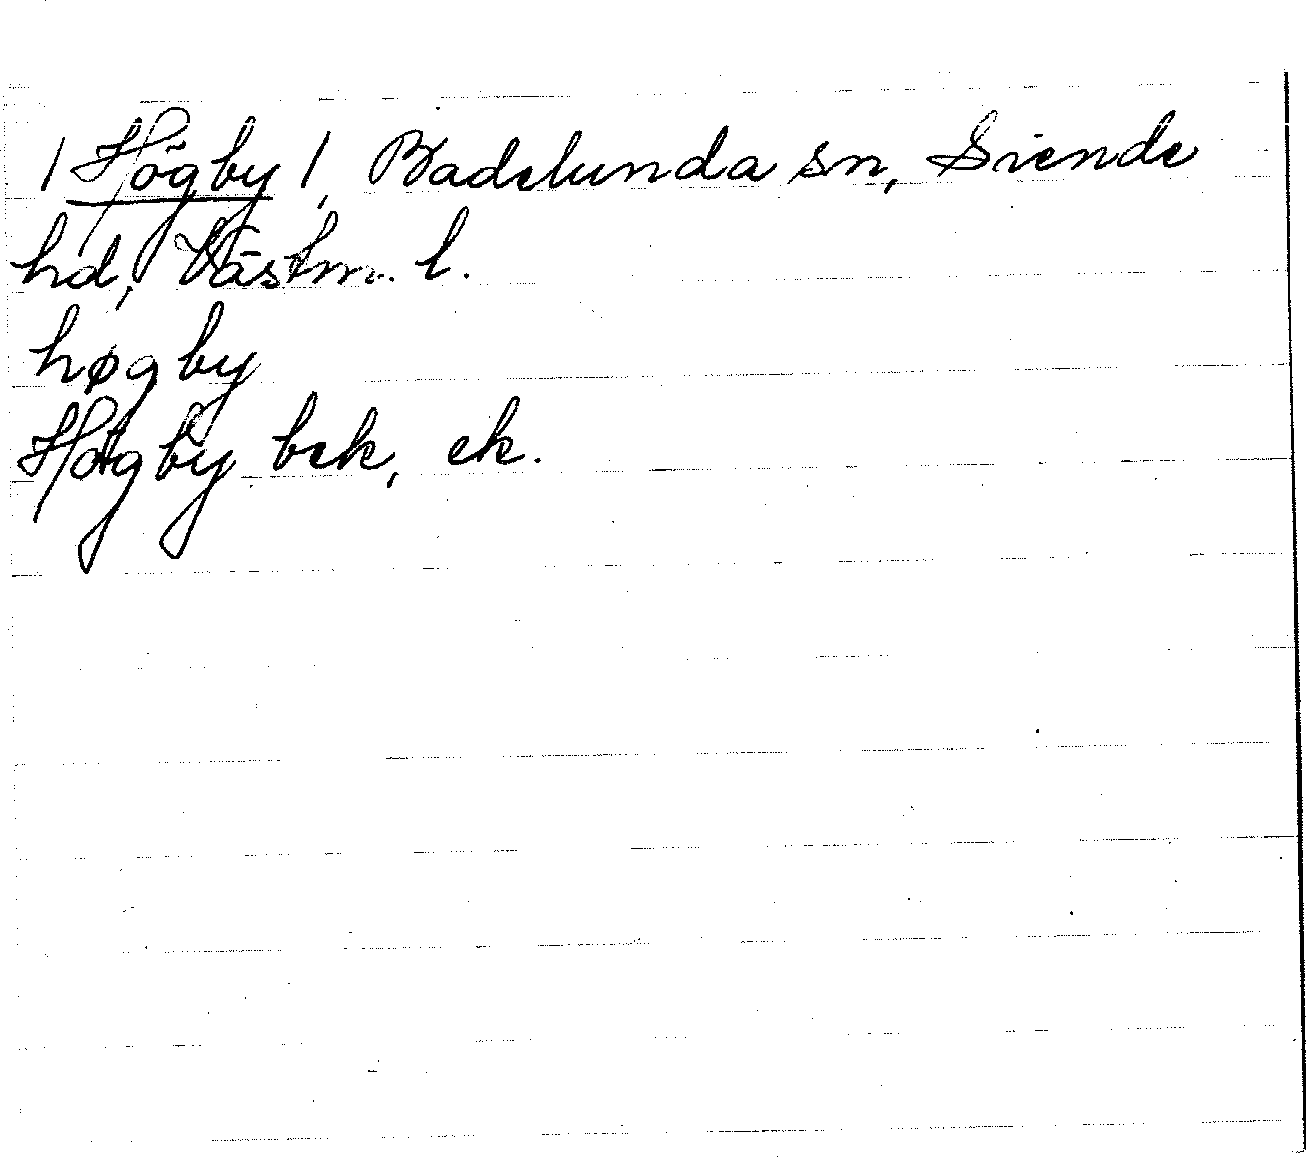 /Högby/, Badelunda sn, Siende
hd, Västm. l.
høgby
Högby bek, ek.